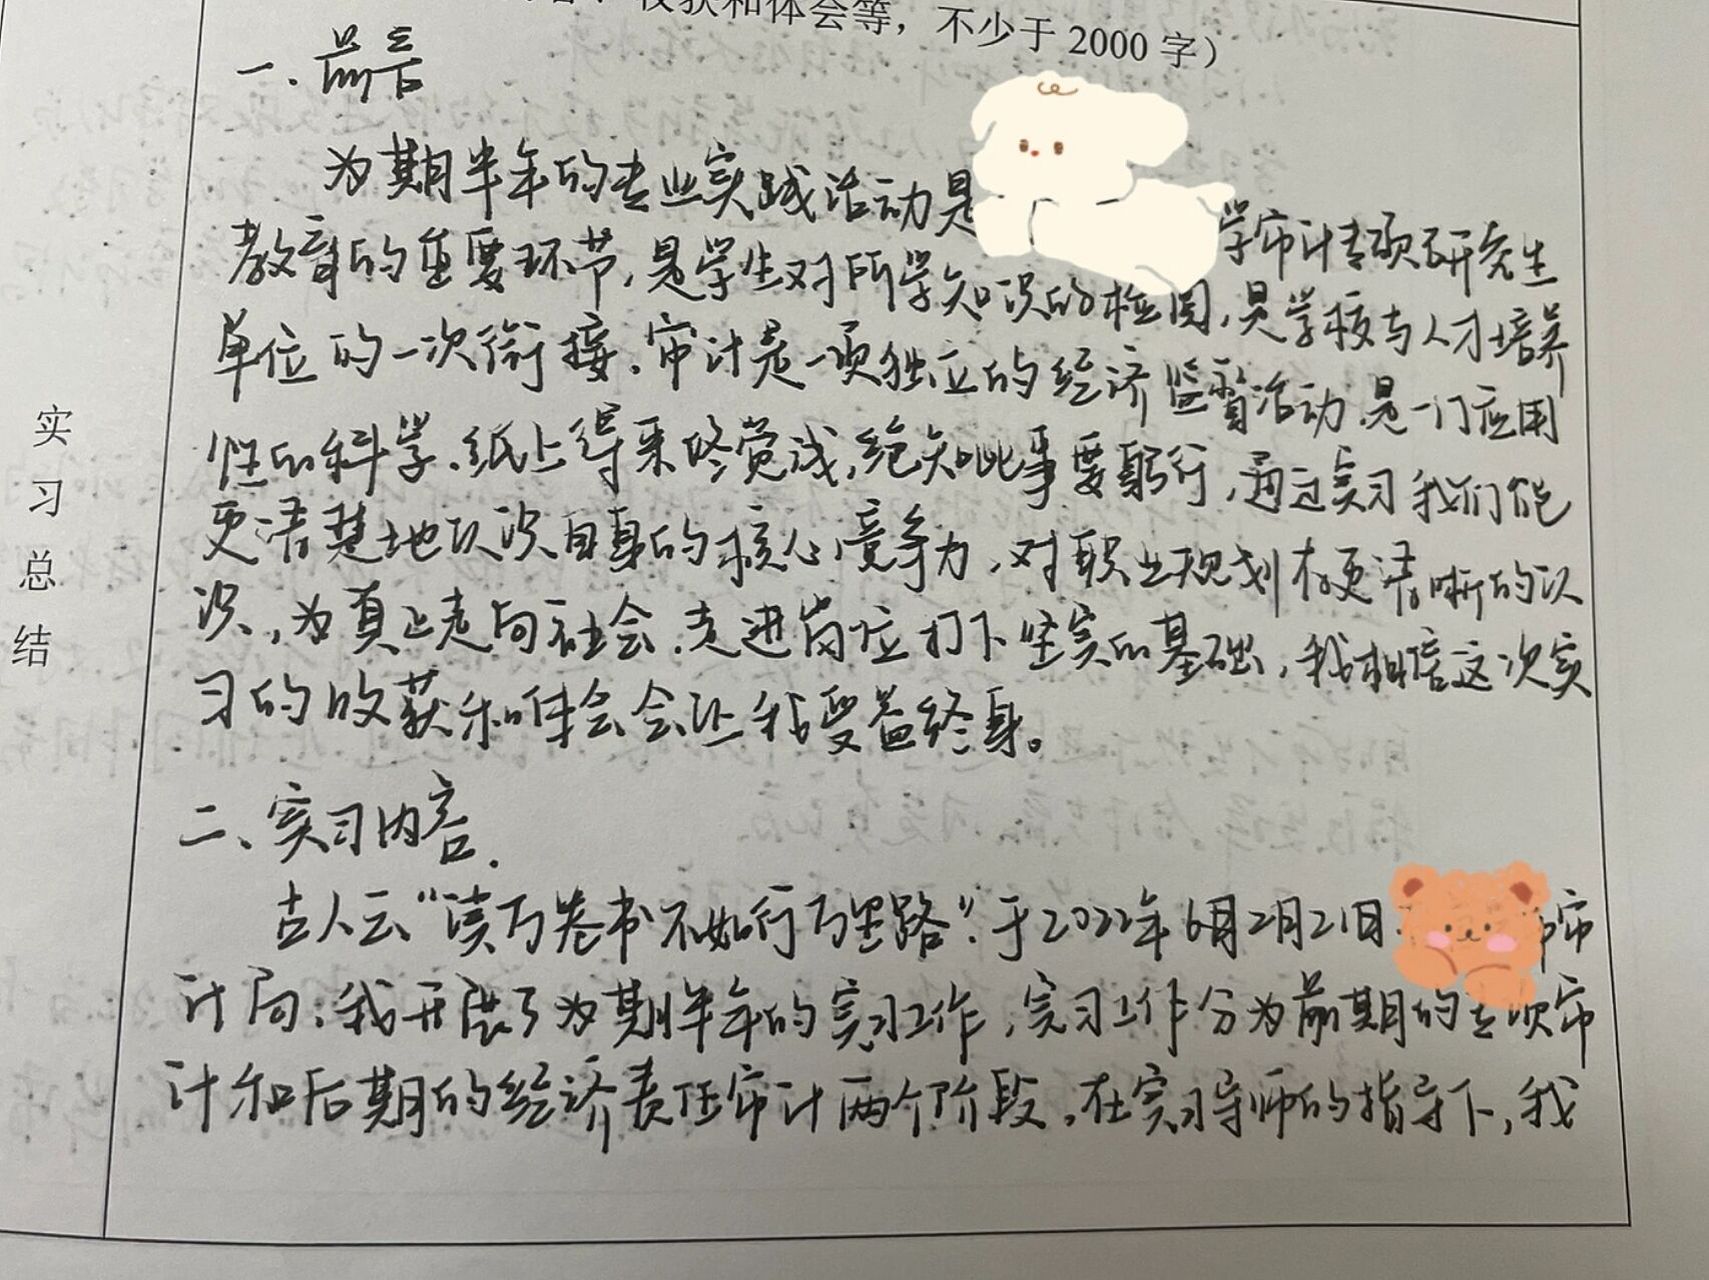 收获和体会等，不少于 2000 字）
一.前言
为期半年的专业实践活动是
学审计专硕研究生
教育的重要环节,是学生对所学知识的检阅,是学校与人才培养
单位的一次衔接.审计是一项独立的经济监督活动.是一门应用
性的科学.纸上得来终觉浅,绝知此事要躬行,通过实习我们能
更清楚地认识自身的核心竞争力.对职业规划有更清晰的认
识,为真正走向社会.走进岗位打下坚实的基础,我相信这次实
习的收获和体会会让我受益终身。
二、实习内容.
古人云"读万卷书不如行万里路".于2022年6月2月21日
审
计局:我开展了为期半年的实习工作,实习工作分为前期的专项审
计和后期的经济责任审计两个阶段,在实习导师的指导下,我
实
习
总
结